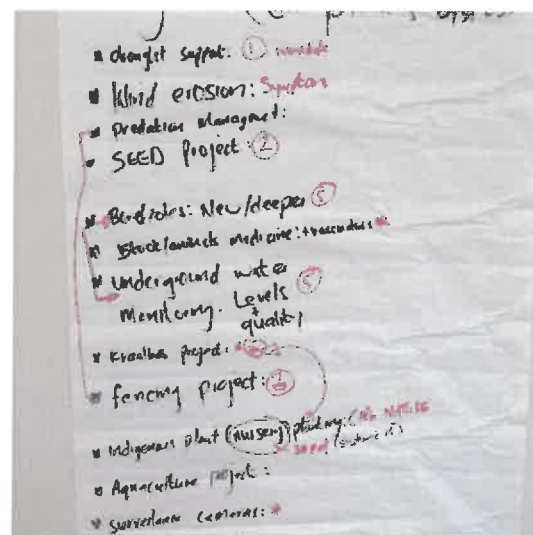 * drought support: ①
* Wind erosion: Symptom
* Predation Managment:
* SEED Project: ②
* Boreholes: New/deeper ⑤
* Stock/animals medicine: + vaccinations *
* Underground water ⑤
Monitoring. Levels
+
quality
* Kraalbos project:
* fencing project:
* Indigenous Plant (nursery) planting:
* Aquaculture project:
* Surveilance Cameras: *